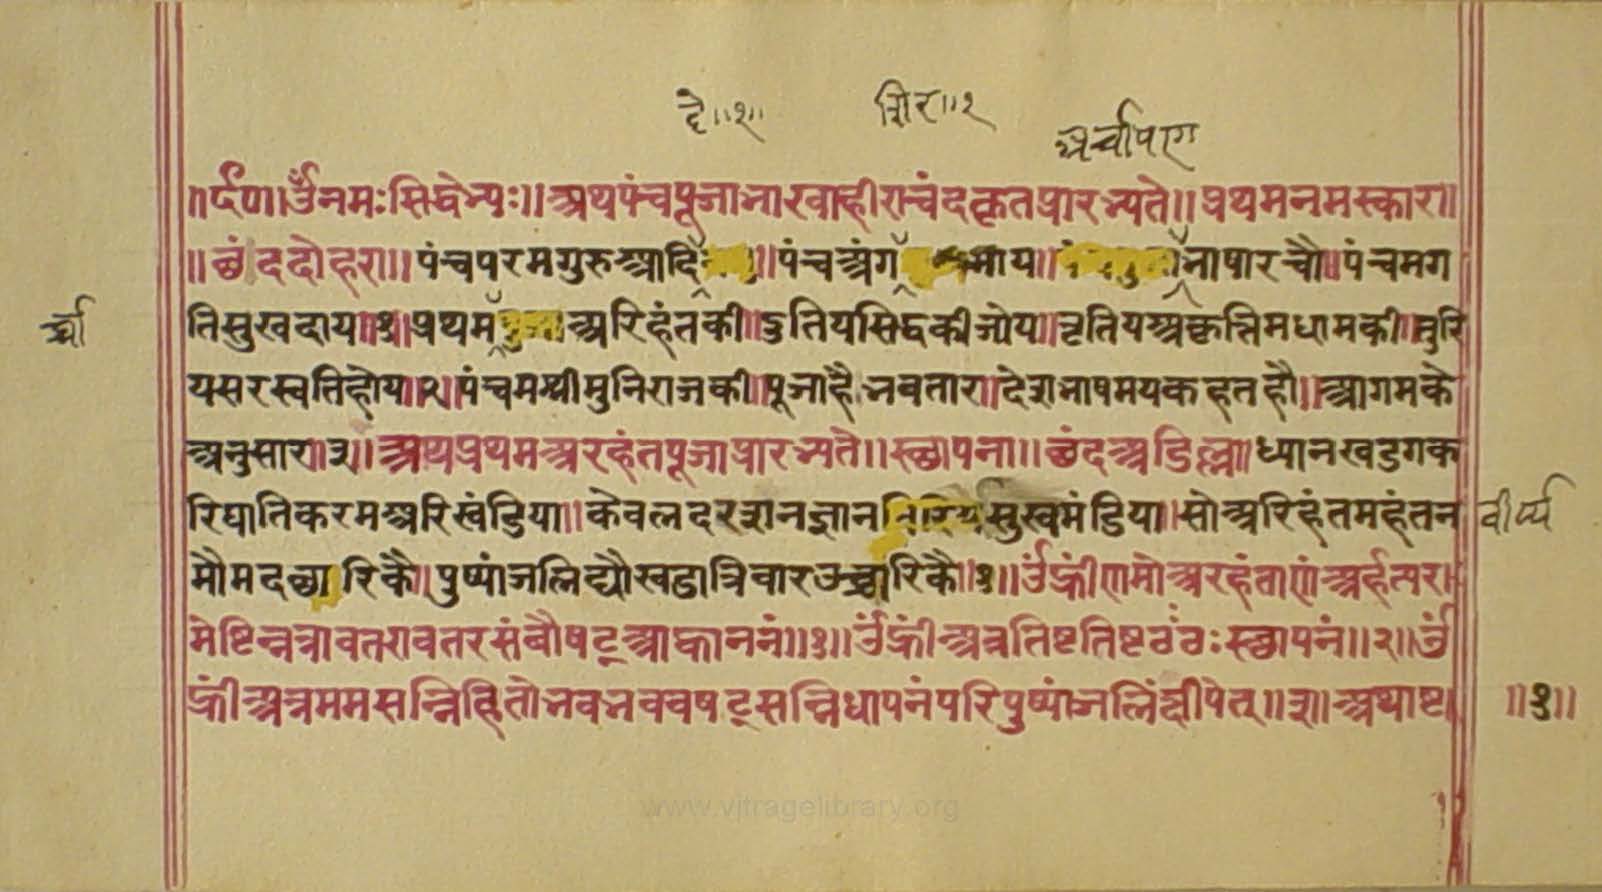 दे॥१॥ शिर॥२
अर्चापराग
॥र्द०॥ॐनमःसिद्धेभ्यः॥अथपंचपूजाभाखाहीराचंदकृतप्रारभ्यते॥प्रथमनमस्कार॥
॥छंददोहरा॥पंचपरमगुरुआदि॥पंचअंग माय॥ भाषारचौ॥पंचमग
तिसुखदाय॥१॥प्रथम अरिहंतकी॥दुतियसिद्धकीज्येय॥तृतियअकृत्तिमधामकी॥तुरि
यसरस्वतिहोय॥२॥पंचमश्रीमुनिराजकी॥पूजाहैभवतार॥देशभाषमयकहतहौ॥आगमके
अनुसार॥३॥अथप्रथमअरहंतपूजाप्रारभ्यते॥स्छापना॥छंदअडिल्ल॥ध्यानखडगक
रिघातिकरमअरिखंडिया॥केवलदरशनज्ञान सुखमंडिया॥सोअरिहंतमहंतन
वीर्य्य
मौमदछारिकै॥पुष्पांजलिद्यौखडात्रिवारउच्चारिकै॥१॥ॐह्रींणमोअरहंताणंअर्हत्पर
मेष्टिन्नत्रावतरावतरसंवौषट्आकाननं॥१॥ॐह्रींअत्रतिष्टतिष्टठंठःस्छापनं॥२॥ॐ
ह्रींअत्रममसन्निहितोभवभववषट्सन्निधापनंपरिपुष्पांजलिंक्षीपेत्॥३॥अथाष्ट
॥१॥
www.vitragelibrary.org